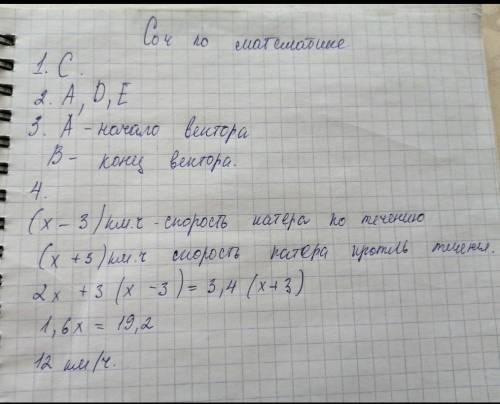 Соч по математике
1. C.
2. A, D, E
3. A - начало вектора
B - конец вектора.
4.
(x - 3) км.ч - скорость катера по течению
(x + 3) км.ч скорость катера против течения.
2x + 3 (x - 3) = 3,4 (x + 3)
1,6x = 19,2
12 км/ч.